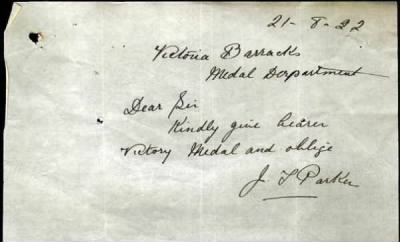 21-8-22
Victoria Barracks
Medal Department
Dear Sir
Kindly give bearer
Victory Medal and oblige
J. T Parker